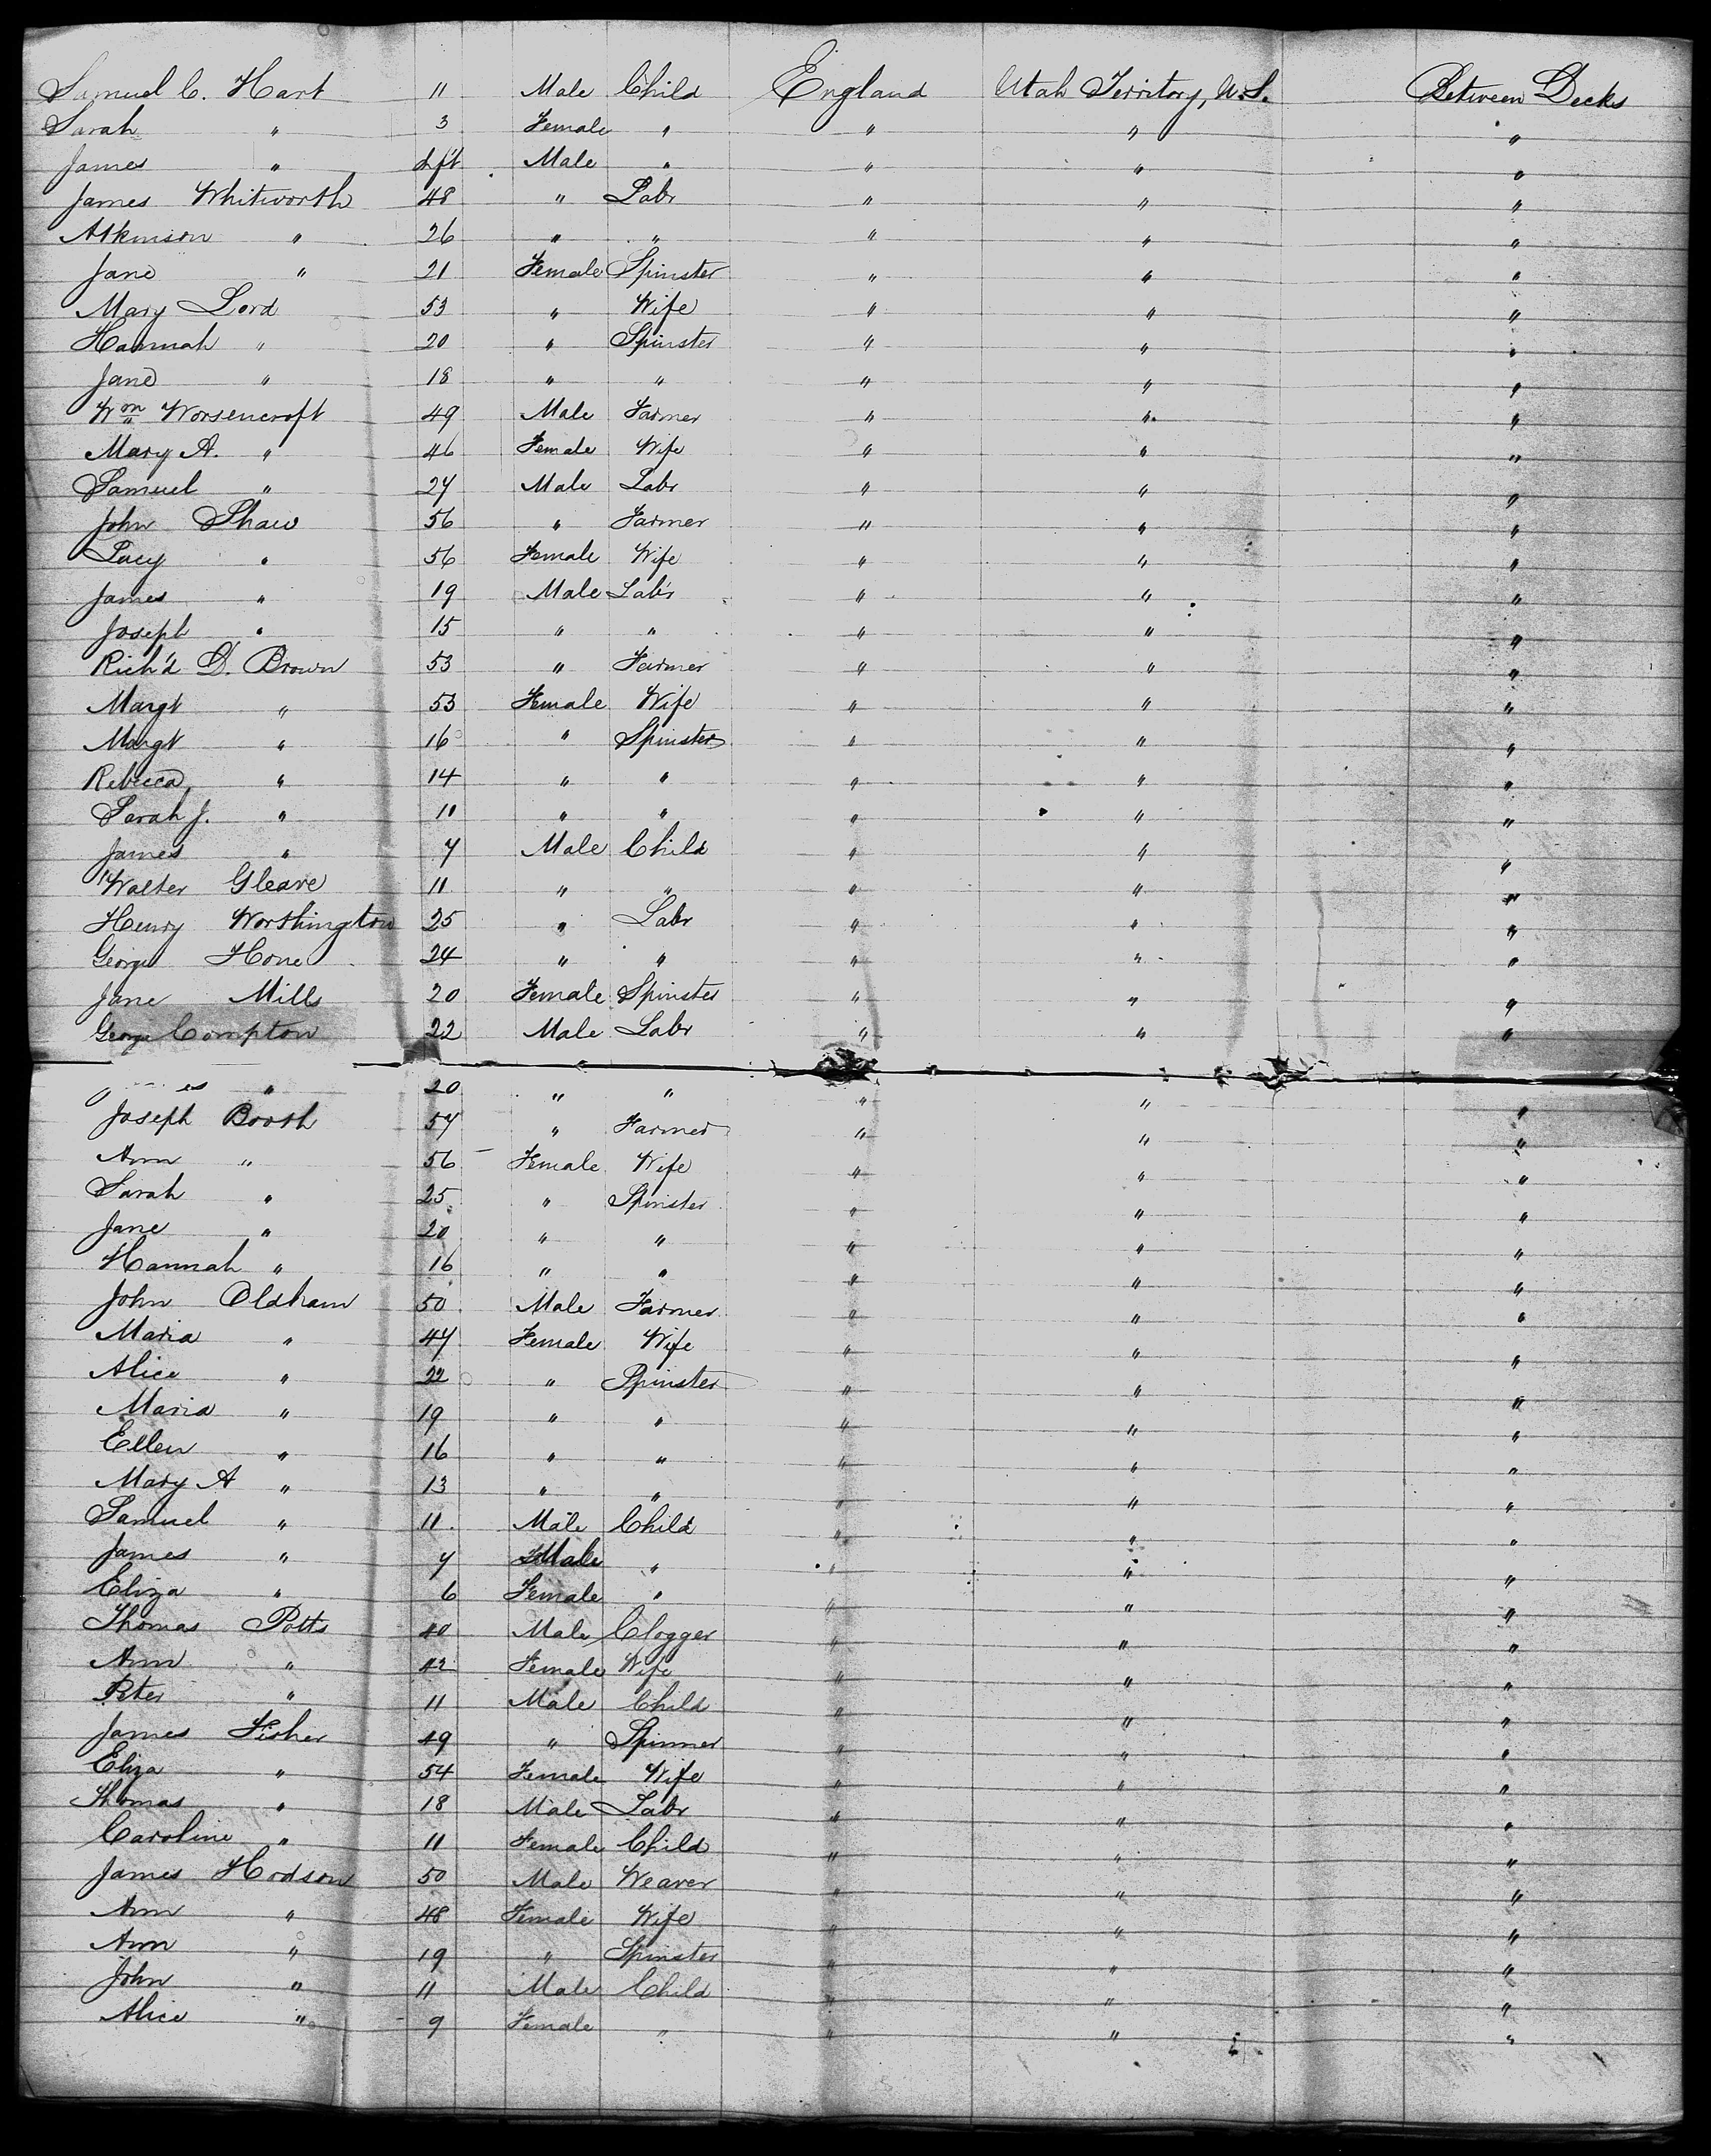 Samuel C. Hart 11 Male Child England Utah Territory, U.S. Between Decks
Sarah " 3 Female " " " "
James " Male " " " "
James Whitworth 48 " Labr " " "
Atkinson " 26 " " " " "
Jane " 21 Female Spinster " " "
Mary Lord 53 " Wife " " "
Hannah " 20 " Spinster " " "
Jane " 18 " " " " "
Wm Worsencroft 49 Male Farmer " " "
Mary A. " 46 Female Wife " " "
Samuel " 27 Male Labr " " "
John Shaw 56 " Farmer " " "
Lucy " 56 Female Wife " " "
James " 19 Male Lab'r " " "
Joseph " 15 " " " " "
Rich'd D. Brown 53 " Farmer " " "
Margt " 53 Female Wife " " "
Margt " 16 " Spinster " " "
Rebecca " 14 " " " " "
Sarah J. " 11 " " " " "
James " 7 Male Child " " "
Walter Gleave 11 " " " " "
Henry Worthington 25 " Labr " " "
George Hone 24 " " " " "
Jane Mills 20 Female Spinster " " "
George Compton 22 Male Labr " " "
" 20 " " " " "
Joseph Booth 57 " Farmer " " "
Ann " 56 Female Wife " " "
Sarah " 25 " Spinster " " "
Jane " 20 " " " " "
Hannah " 16 " " " " "
John Oldham 50 Male Farmer " " "
Maria " 47 Female Wife " " "
Alice " 22 " Spinster " " "
Maria " 19 " " " " "
Ellen " 16 " " " " "
Mary A " 13 " " " " "
Samuel " 11 Male Child " " "
James " 7 Male " " " "
Eliza " 6 Female " " " "
Thomas Potts 40 Male Clogger " " "
Ann " 42 Female Wife " " "
Peter " 11 Male Child " " "
James Fisher 49 " Spinner " " "
Eliza " 54 Female Wife " " "
Thomas " 18 Male Labr " " "
Caroline " 11 Female Child " " "
James Hodson 50 Male Weaver " " "
Ann " 48 Female Wife " " "
Ann " 19 " Spinster " " "
John " 11 Male Child " " "
Alice " 9 Female " " " "